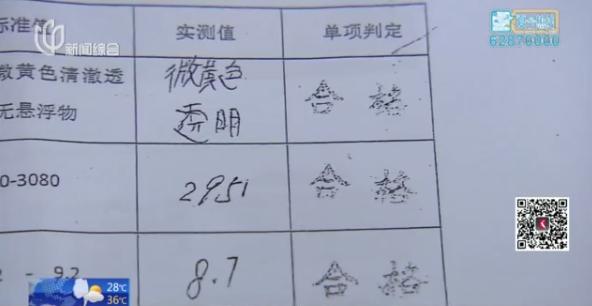 新闻综合
62870000
标准值 实测值 单项判定
微黄色清澈透 微黄色 合格
无悬浮物 透明
0-3080 2951 合格
- 9.2 8.7 合格
28℃
36℃